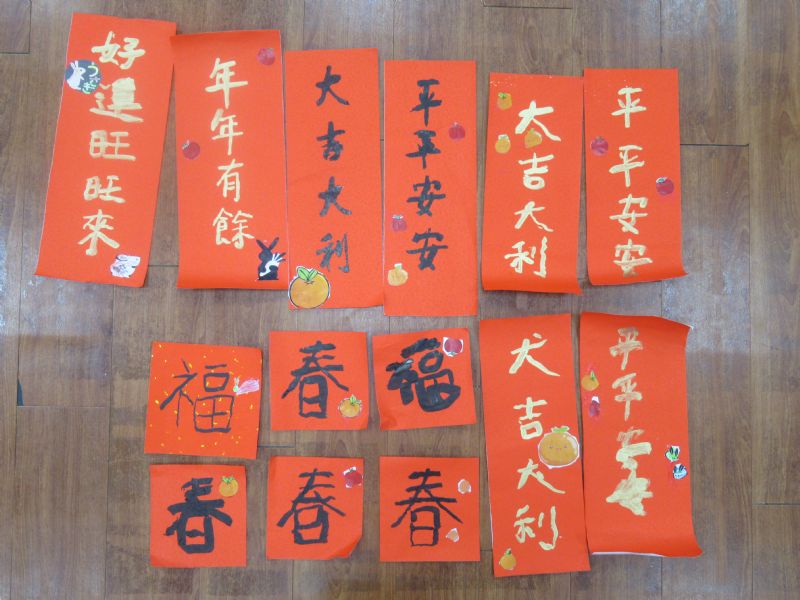 好運旺旺來
うさぎ
年年有餘
大吉大利
平平安安
大吉大利
平平安安
福
春
福
犬吉大利
平平安
春
春
春